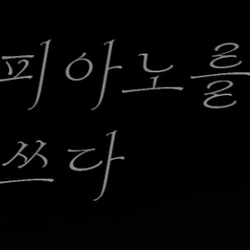 피아노를
쓰다